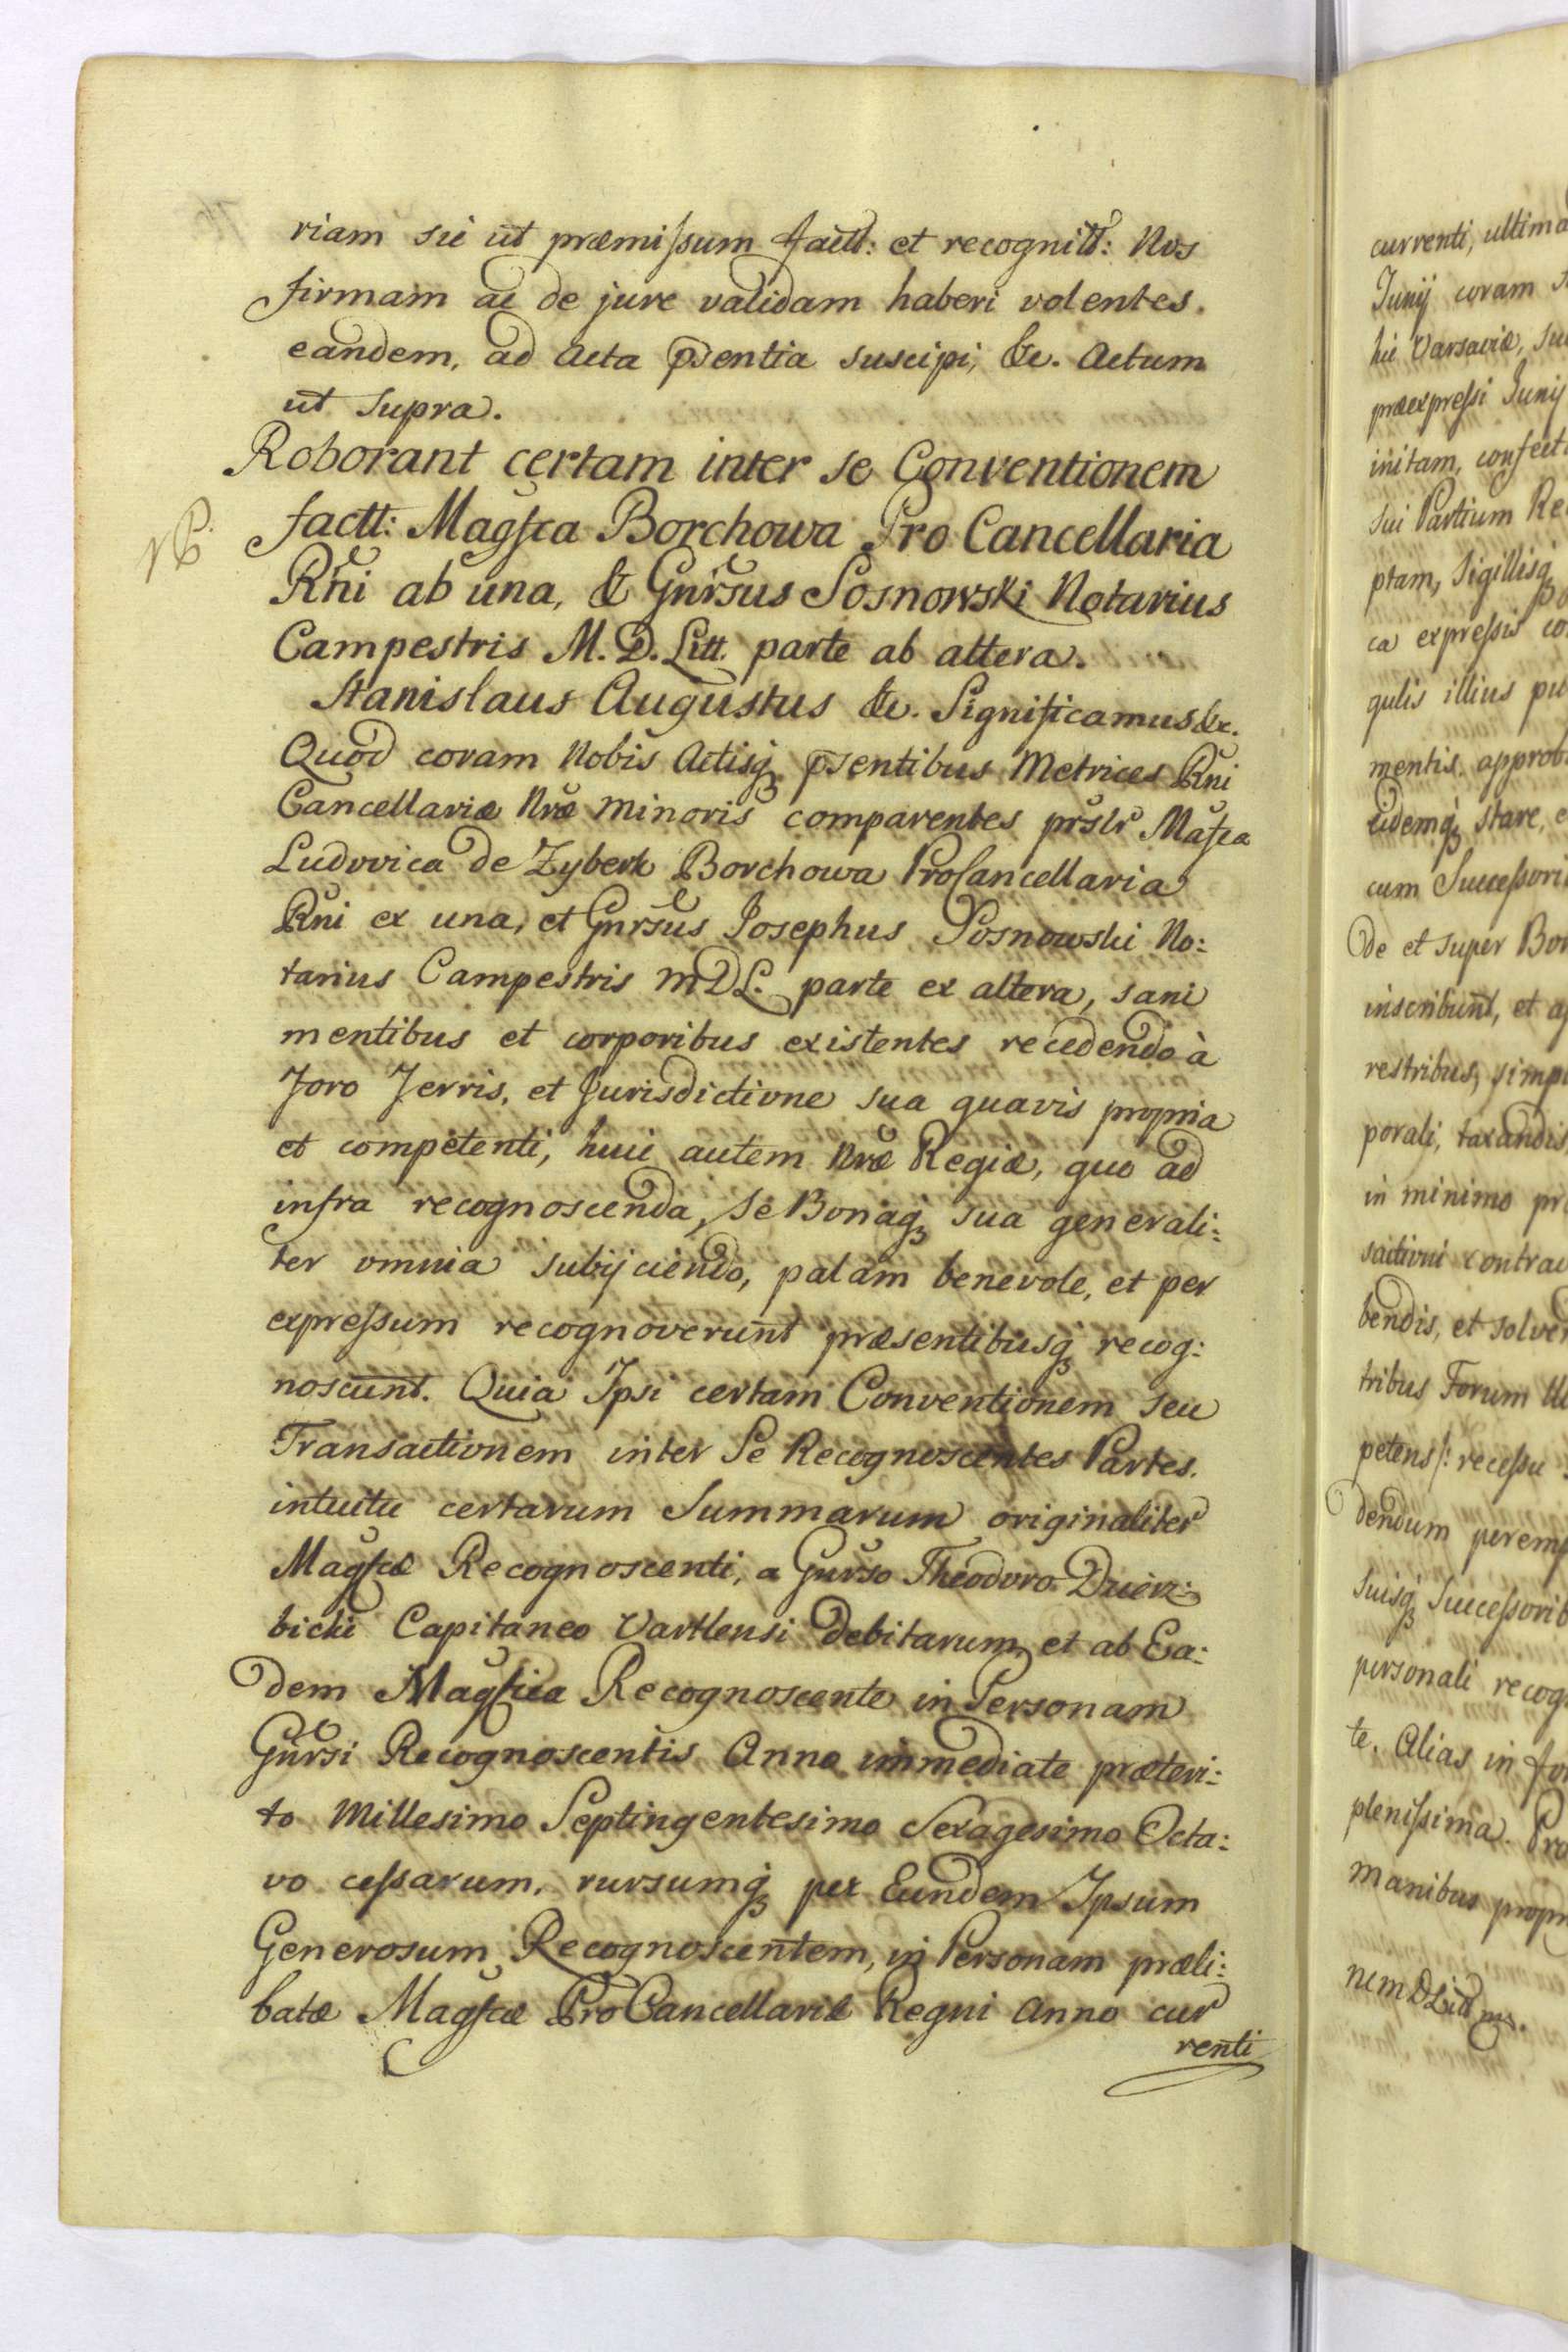 riam sic ut præmissum factt: et recognitt: Nos
firmam ac de jure validam haberi volentes.
eandem, ad Acta psentia suscipi, &c. Actum
ut supra.
Roborant certam inter se Conventionem
factt: Magfca Borchowa Pro Cancellaria
Rni ab una, & Gnrsus Sosnowski Notarius
Campestris M. D. Litt. parte ab altera.
NB.
Stanislaus Augustus &c. Significamus &c.
Quod coram Nobis Actisq psentibus Metrices Rni
Cancellariæ Nræ minoris comparentes prslr Mafca
Ludovica de Zyberk Borchowa ProCancellaria
Rni ex una, et Gnrsus Josephus Sosnowski No:
tarius Campestris MDL. parte ex altera, sani
mentibus et corporibus existentes recedendo à
Foro Terris, et Jurisdictione sua quavis propria
et competenti, huic autem Nræ Regiæ, quo ad
infra recognoscenda, se Bonaq sua generali:
ter omnia subijciendo, palam benevole, et per
expressum recognoverunt præsentibusq recog:
noscunt. Quia Ipsi certam Conventionem seu
Transactionem inter Se Recognoscentes Partes.
intuitu certarum Summarum originaliter
Magfcæ Recognoscenti, a Gnrso Theodoro Dzierz:
bicki Capitaneo Vartlensi debitarum, et ab Ea:
dem Magfica Recognoscente in Personam
Gnrsi Recognoscentis Anno immediate præteri:
to Millesimo Septingentesimo Sexagesimo Octa:
vo cessarum, rursumq per Eundem Ipsum
Generosum Recognoscentem, in Personam præli:
batæ Magfcæ ProCancellariæ Regni Anno cur
renti
currenti, ultima
Junij coram
hic Varsaviæ,
præexpressi Junij
initam,
sui Partium
ptam, Sigillisq
ca expressis
gulis illius
mentis,
eidemq stare,
cum
De et super
inscribunt, et
restribus,
porali, taxandis,
in minimo

bendis, et
tribus Forum
petens/: recessu
dendum
suisq
personali
te. Alias in
plenissima.
manibus